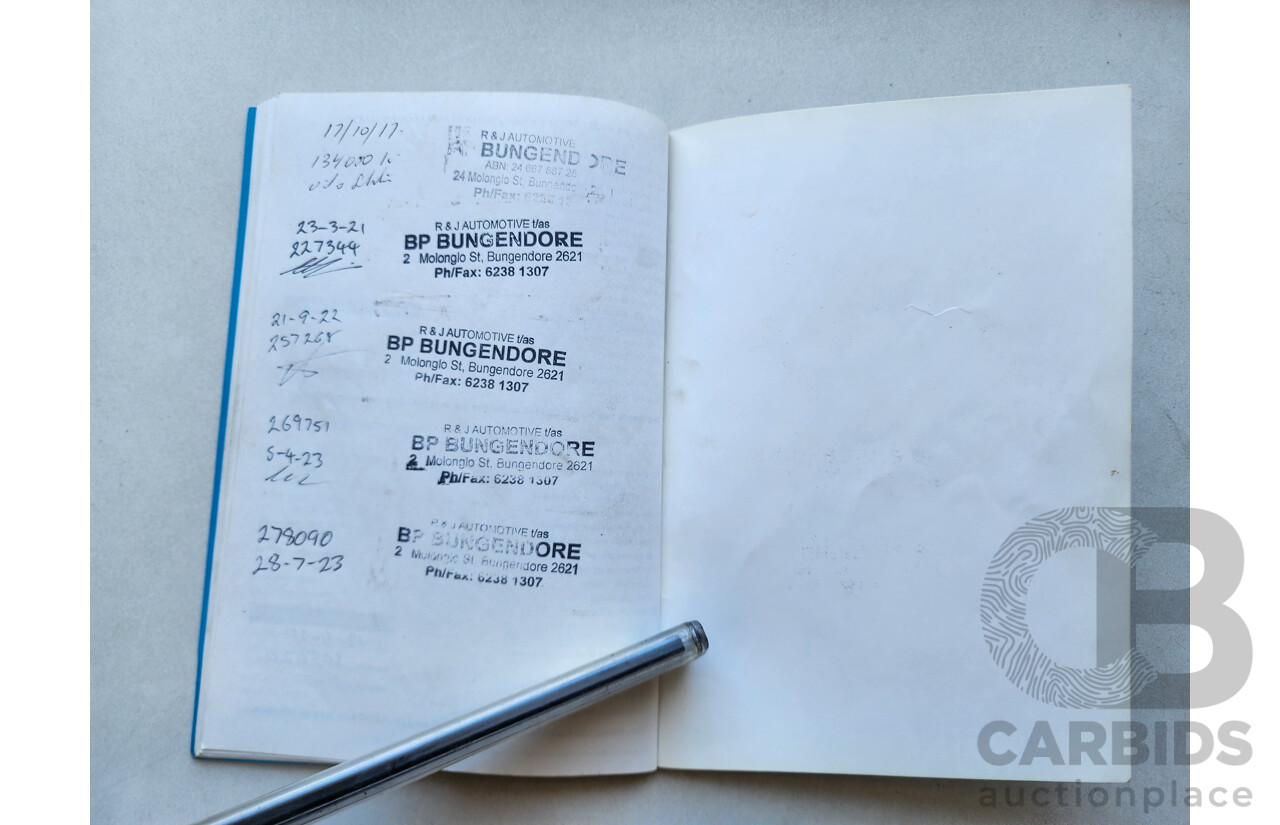 17/10/17.
134000 k
R & J AUTOMOTIVE
BUNGENDORE
ABN: 24 667 867 26
24 Molonglo St, Bungendo
Ph/Fax: 6238 13
23-3-21
227344
R & J AUTOMOTIVE t/as
BP BUNGENDORE
2 Molonglo St, Bungendore 2621
Ph/Fax: 6238 1307
21-9-22
257268
R & J AUTOMOTIVE t/as
BP BUNGENDORE
2 Molonglo St, Bungendore 2621
Ph/Fax: 6238 1307
269751
5-4-23
R & J AUTOMOTIVE t/as
BP BUNGENDORE
2 Molonglo St, Bungendore 2621
Ph/Fax: 6238 1307
278090
28-7-23
R & J AUTOMOTIVE t/as
BP BUNGENDORE
2 Molonglo St, Bungendore 2621
Ph/Fax: 6238 1307
CB
CARBIDS
auctionplace